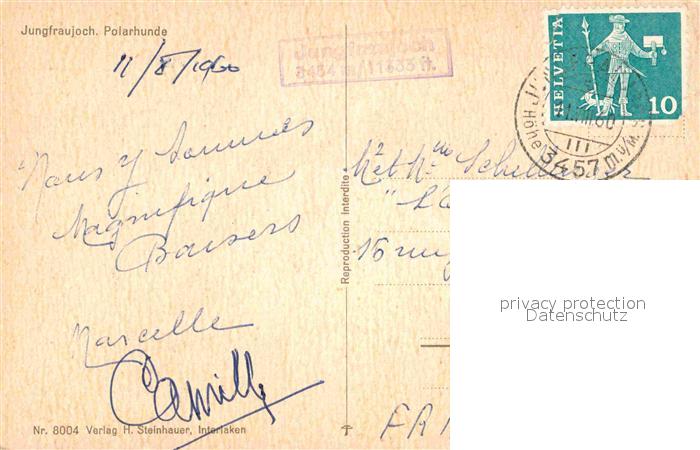 Jungfraujoch. Polarhunde
11/8/1960
Jungfraujoch
3454 m/11333 ft.
HELVETIA
10
Höhe 3457 m.ü/M.
Nous y sommes
Magnifique
Baisers
Marcelle
Camille
Mr et Mme
"L'
15 rue
FR
Reproduction interdite
privacy protection
Datenschutz
Nr. 8004 Verlag H. Steinhauer, Interlaken